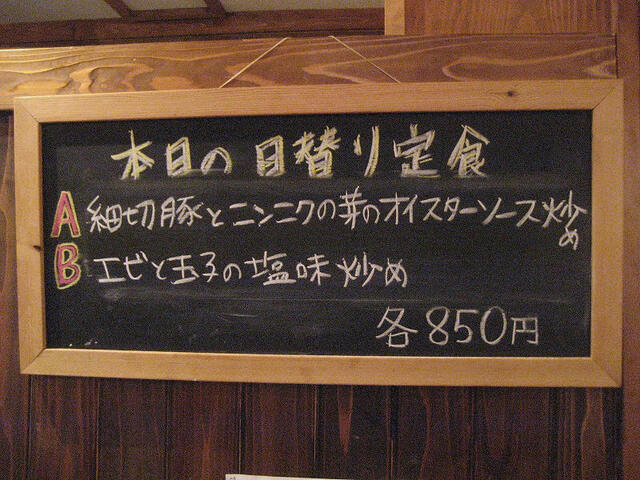 本日の日替り定食
A 細切豚とニンニクの芽のオイスターソース炒め
B エビと玉子の塩味炒め
各850円